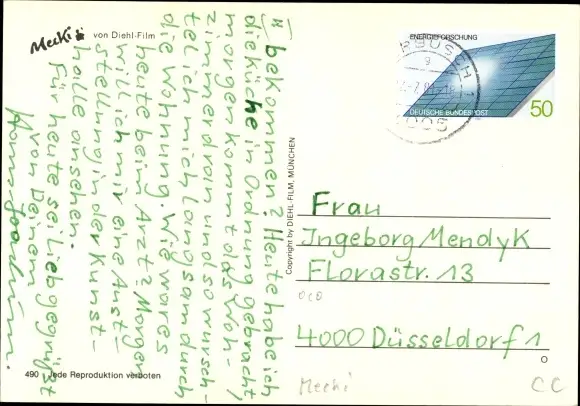 Mecki
von Diehl-Film
¤ bekommen? Heute habe ich
die Küche in Ordnung gebracht,
morgen kommt das Wohn-
zimmer dran und so wursch-
tel ich mich langsam durch
die Wohnung. Wie war es
heute beim Arzt? Morgen
will ich mir eine Ausst-
stellung in der Kunst-
halle ansehen.
Für heute sei lieb gegrüßt
von Deinem
490 Jede Reproduktion verboten
Copyright by DIEHL-FILM, MÜNCHEN
ENERGIEFORSCHUNG
DEUTSCHE BUNDESPOST
50
Frau
Ingeborg Mendyk
Florastr. 13
4000 Düsseldorf 1
Mecki
CC